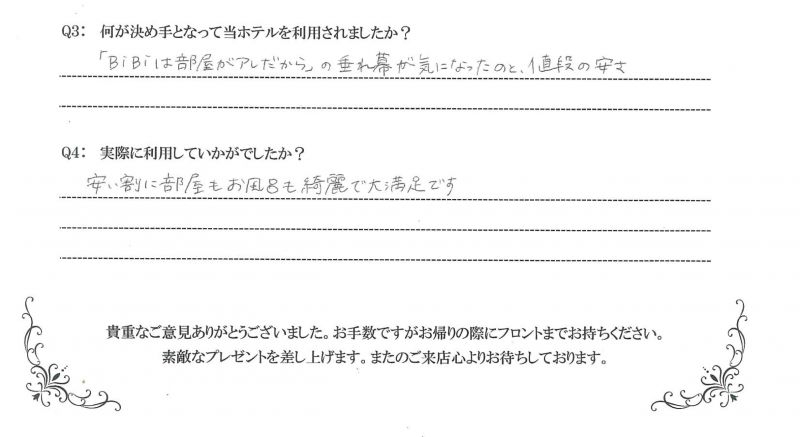 Q3: 何が決め手となって当ホテルを利用されましたか?
「BiBiは部屋がアレだから」の垂れ幕が気になったのと、値段の安さ
Q4: 実際に利用していかがでしたか?
安い割に部屋もお風呂も綺麗で大満足です
貴重なご意見ありがとうございました。お手数ですがお帰りの際にフロントまでお持ちください。
素敵なプレゼントを差し上げます。またのご来店心よりお待ちしております。